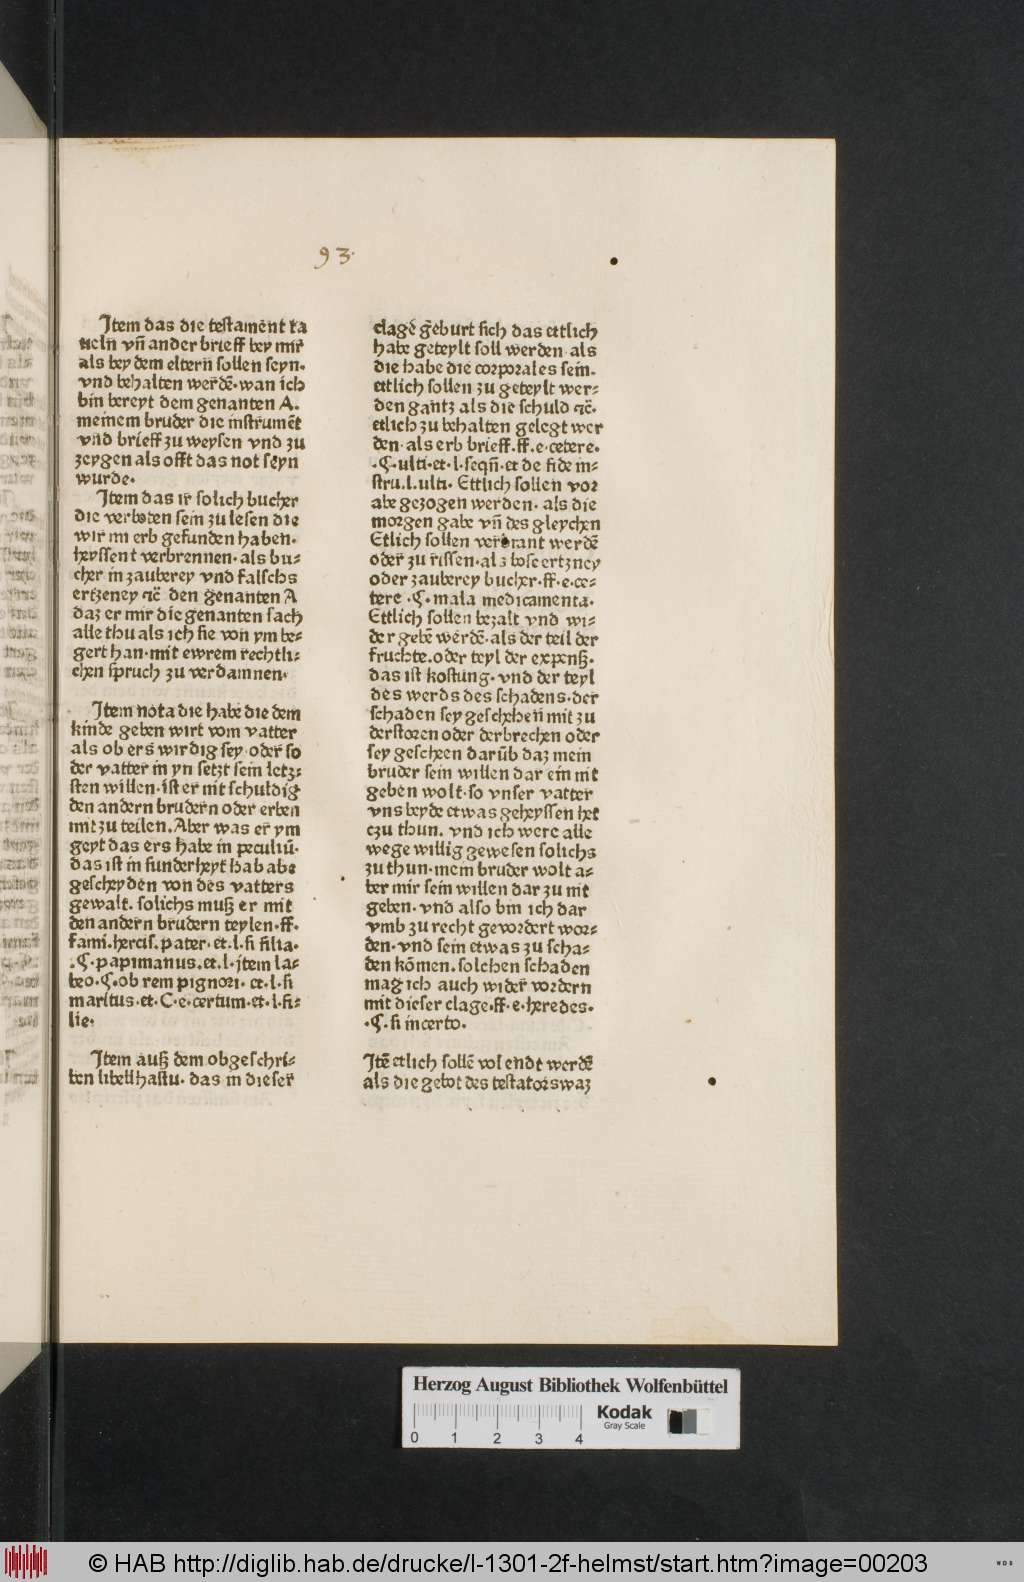 93.
Item das die testamēnt ka
ueln̄ vn̄ ander brieff bey mir
als bey dem eltern̄ sollen seyn.
vnd behalten werdē. wan ich
bin bereyt dem genanten A.
meinem bruder die instrumēt
vnd brieff zu weysen vnd zu
zeygen als offt das not seyn
wurde.
Item das ir solich bucher
die verboten sein zu lesen die
wir im erb gefunden haben.
heyssent verbrennen. als bu-
cher in zauberey vnd falschs
ertzeney ⁊c̄ den genanten A
daz er mir die genanten sach
alle thu als ich sie von ym be-
gert han. mit ewrem rechtli-
chen spruch zu verdamnen.
Item nota die habe die dem
kinde geben wirt vom vatter
als ob ers wirdig sey. oder so
der vatter in yn setzt sein letz-
sten willen. ist er nit schuldig
den andern brudern oder erben
mit zu teilen. Aber was er ym
geyt das ers habe in peculiū.
das ist in sunderheyt hab abe
gescheyden von des vatters
gewalt. solichs muß er mit
den andern brudern teylen. ff.
fami. hercis. pater. et. l. si filia.
.C. papimanus. et. l. item la-
beo. C. ob rem pignori. et. l. si
maritus. et. C. e. certum. et. l. fi-
lie.
Item auß dem obgeschri-
ben libell hastu. das in dieser
clagē gēburt sich das ettlich
habe geteylt soll werden als
die habe die corporales sein.
ettlich sollen zu geteylt wer-
den gantz als die schuld ⁊c̄.
ettlich zu behalten gelegt wer
den. als erb brieff. ff. e. cetere.
.C. ulti. et. l. seqn̄. et de fide in-
stru. l. ulti. Ettlich sollen vor
abe gezogen werden. als die
morgen gabe vn̄ des gleychen
Etlich sollen verbrant werdē
oder zu rissen. als bose ertzney
oder zauberey bucher. ff. e. ce-
tere .C. mala medicamenta.
Ettlich sollen bezalt vnd wi-
der gebē wērdē. als der teil der
fruchte. oder teyl der expenß.
das ist kostung. vnd der teyl
des werds des schadens. der
schaden sey geschehen̄ mit zu
derstoren oder derbrechen oder
sey gescheen darūb daz mein
bruder sein willen dar ein nit
geben wolt. so vnser vatter
vns beyde etwas geheyssen het
czu thun. vnd ich were alle
wege willig gewesen solichs
zu thun. mein bruder wolt a-
ber mir sein willen dar zu nit
geben. vnd also bin ich dar
vmb zu recht gevordert wor-
den. vnd sein etwas zu scha-
den kōmen. solchen schaden
mag ich auch wider vordern
mit dieser clage. ff. e. heredes.
.C. si incerto.
Itē etlich sollē volendt werdē
als die gebot des testators waz
Herzog August Bibliothek Wolfenbüttel
Kodak
Gray Scale
0 1 2 3 4
© HAB http://diglib.hab.de/drucke/l-1301-2f-helmst/start.htm?image=00203
WDB